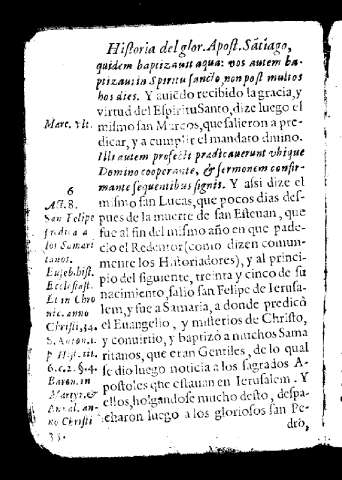 Historia del glor. Apost. Sãtiago,
quidem baptizauit aqua: vos autem ba-
ptizaui in Spiritu sancto, non post multos
hos dies. Y auiẽdo recibido la gracia, y
virtud del Espiritu Santo, dize luego el
Marc. vlt.
mismo san Marcos, que salieron a pre-
dicar, y a cumplir el mandato diuino.
Illi autem profecti prædicauerunt vbique
Domino cooperante, & sermonem confir-
mante sequentibus signis. Y assi dize el
6
Act. 8.
San Felipe
predica a
los Samari
tanos.
Euseb. hist.
Ecclesiast.
Et in Chro
nic. anno
Christi, 34.
S. Anton. 1.
p. Hist. tit.
6. c. 2. §. 4.
Baron. in
Martyr. &
Annal. an-
no Christi
35.
mismo san Lucas, que pocos dias des-
pues de la muerte de san Esteuan, que
fue al fin del mismo año en que pade-
cio el Redentor (como dizen comun-
mente los Historiadores), y al princi-
pio del siguiente, treinta y cinco de su
nacimiento, salio san Felipe de Ierusa-
lem, y fue a Samaria, a donde predicò
el Euangelio, y misterios de Christo,
y conuirtio, y baptizò a muchos Sama
ritanos, que eran Gentiles, de lo qual
se dio luego noticia a los sagrados A-
postoles que estauan en Ierusalem. Y
ellos, holgandose mucho desto, despa-
charon luego a los gloriosos san Pe-
dro,